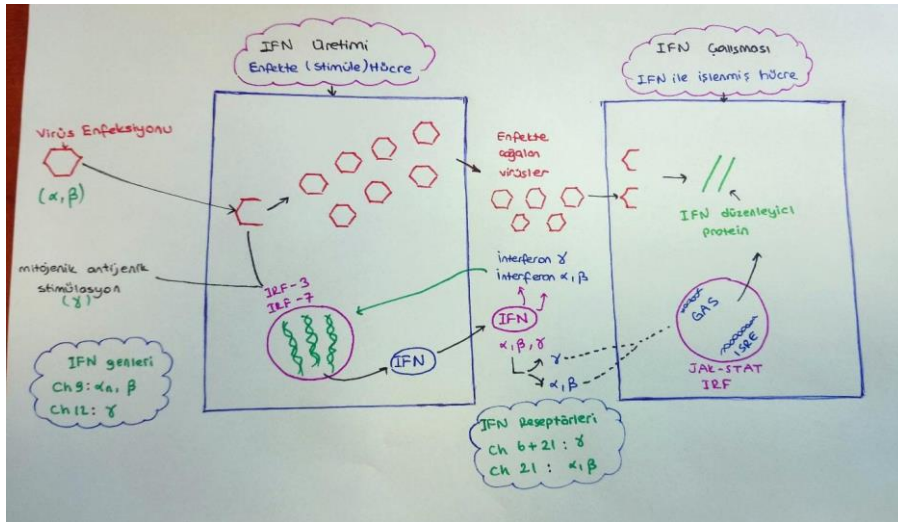 IFN Üretimi
Enfekte (stimüle) Hücre
IFN Çalışması
IFN ile işlenmiş hücre
Virüs Enfeksiyonu
(α, β)
mitojenik antijenik
stimülasyon
(γ)
IRF-3
IRF-7
IFN genleri
Ch 9: αn, β
Ch 12: γ
IFN
Enfekte
çoğalan
virüsler
interferon γ
interferon α, β
IFN
α, β, γ
γ
α, β
IFN Reseptörleri
Ch 6+21: γ
Ch 21: α, β
IFN düzenleyici
protein
GAS
ISRE
JAK-STAT
IRF